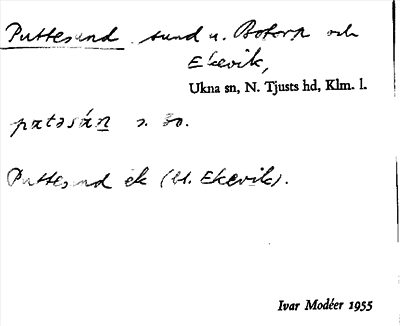 Puttesund sund u. Botorp och
Ekevik,
Ukna sn, N. Tjusts hd, Klm. l.
s. so.
Puttesund ek (U. Ekevik).
Ivar Modéer 1955